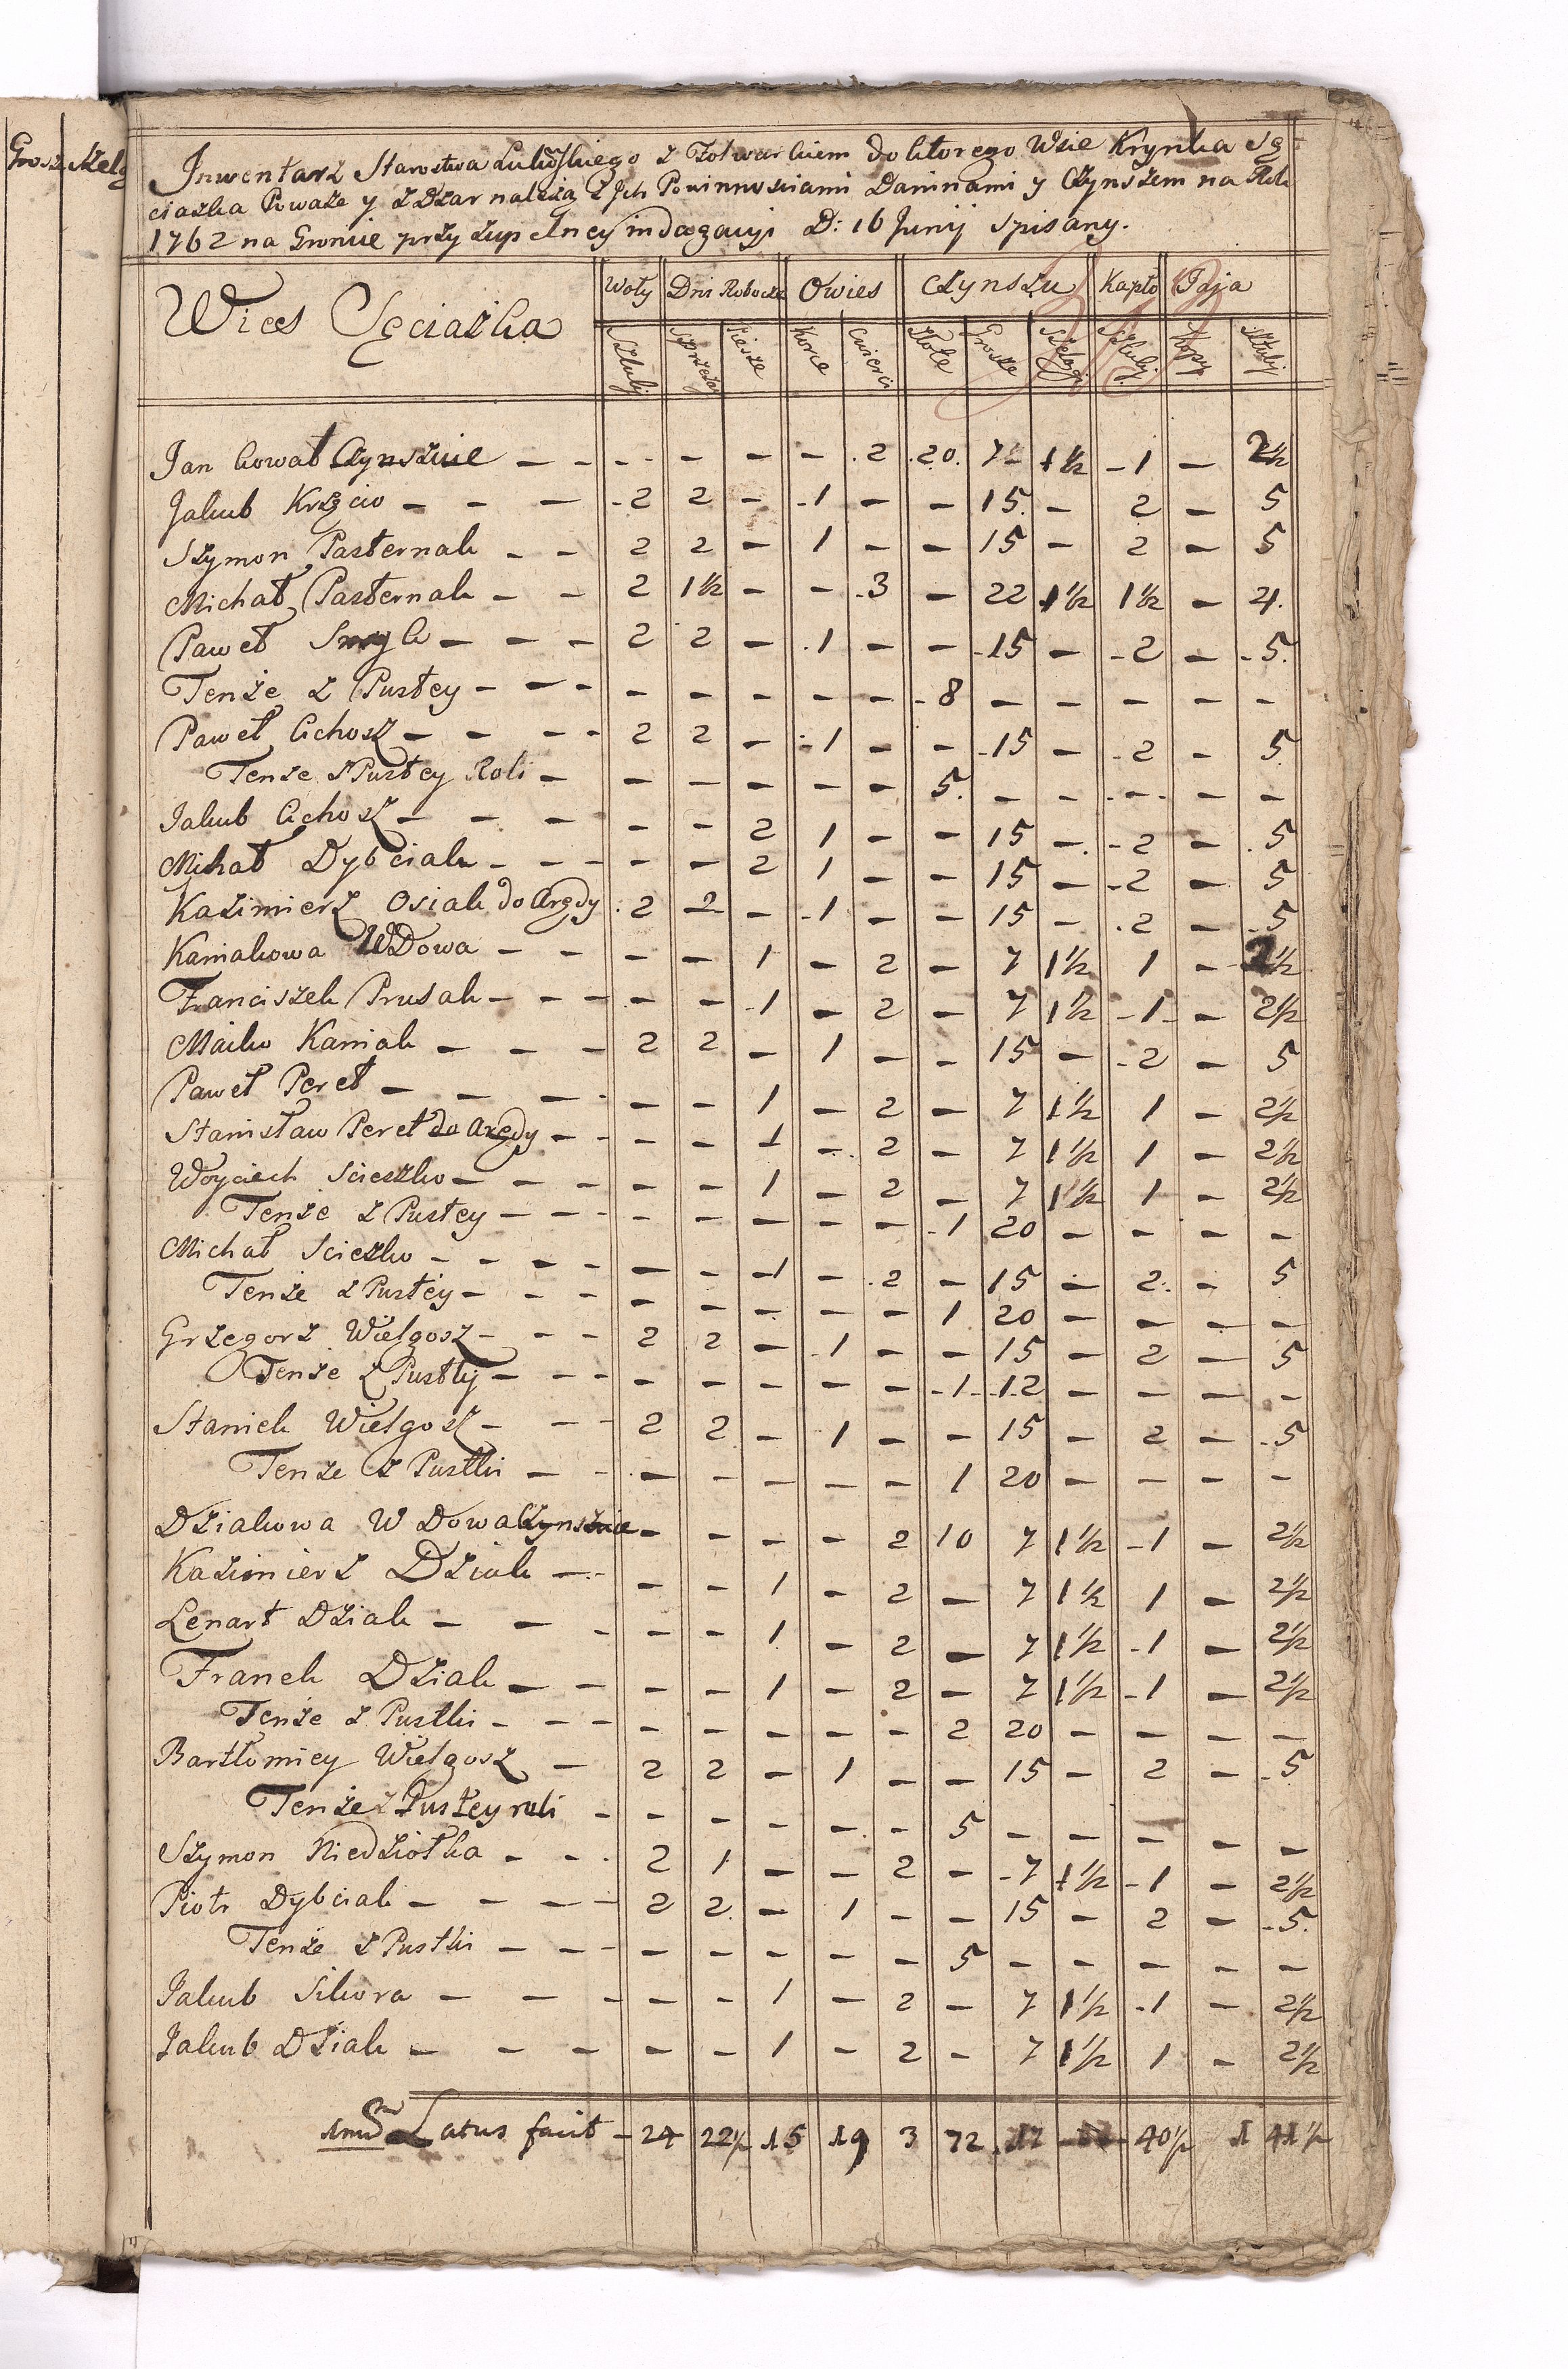 Grosz Szelą
Inwentarz Starostwa Łukowskiego z Folwarkiem do ktorego Wsie Krynka Sę
ciaszka Poważe y z Dżar należą z Jch Powinnosciami Daninami y Czynszem na Rok
1762 na Groncie przy zupełney indagacyi D: 16 Junij spisany.
Wies Sęciaszka Woły Dni Robocze Owies Czynszu Kapło Jaja
Sztuki Sprzężay Piesze Korce Cwierci Złote Grosze Szelągi Sztuki Kopy Sztuki
Jan Kowal Czynszuie - - - - - 2 20 7 1½ 1 - 2½
Jakub Krzciu - - - 2 2 - 1 - - 15 - 2 - 5
Szymon Pasternak - - 2 2 - 1 - - 15 - 2 - 5
Michał Pasternak - - 2 1½ - - 3 - 22 1½ 1½ - 4
Paweł - - - 2 2 - 1 - - 15 - 2 - 5
Tenże z Pustey - - - - - - - - 8 - - - - -
Paweł Cichosz - - - - 2 2 - 1 - - 15 - 2 - 5
Tenże z Pustey Roli - - - - - - 5 - - - - -
Jakub Cichosz - - - - - 2 1 - - 15 - 2 - 5
Michał Dybciak - - - - - 2 1 - - 15 - 2 - 5
Kazimierz Osiak do Arędy 2 2 - 1 - - 15 - 2 - 5
Kaniakowa Wdowa - - - - 1 - 2 - 7 1½ 1 - 2½
Franciszek Prusak - - - - - 1 - 2 - 7 1½ 1 - 2½
Maćko Kaniak - - - 2 2 - 1 - - 15 - 2 - 5
Paweł Pereł - - - - - 1 - 2 - 7 1½ 1 - 2½
Stanisław Pereł do Arędy - - - - 1 - 2 - 7 1½ 1 - 2½
Woyciech Scieszko - - - - - 1 - 2 - 7 1½ 1 - 2½
Tenże z Pustey - - - - - - - - 1 20 - - - -
Michał Scieszko - - - - - - 1 - 2 - 15 - 2 - 5
Tenże z Pustey - - - - - - - - 1 20 - - - -
Grzegorz Wielgosz - - - 2 2 - 1 - - 15 - 2 - 5
Tenże z Pustey - - - - - - - - 1 12 - - - -
Staniek Wielgosz - - - 2 2 - 1 - - 15 - 2 - 5
Tenże z Pustki - - - - - - - 1 20 - - - -
Dziakowa Wdowa Czynszuie - - - - 2 10 7 1½ 1 - 2½
Kazimierz Dziak - - - - 1 - 2 - 7 1½ 1 - 2½
Lenart Dziak - - - - - 1 - 2 - 7 1½ 1 - 2½
Franek Dziak - - - - 1 - 2 - 7 1½ 1 - 2½
Tenże z Pustki - - - - - - - - 2 20 - - - -
Bartłomiey Wielgosz - 2 2 - 1 - - 15 - 2 - 5
Tenże z Pustey roli - - - - - - 5 - - - - -
Szymon Niedziołka - - - 2 1 - - 2 - 7 1½ 1 - 2½
Piotr Dybciak - - - - 2 2 - 1 - - 15 - 2 - 5
Tenże z Pustki - - - - - - - - 5 - - - - -
Jakub Sikora - - - - - 1 - 2 - 7 1½ 1 - 2½
Jakub Dziak - - - - - 1 - 2 - 7 1½ 1 - 2½
Latus facit - 24 22½ 15 19 3 72 17 40½ 1 41½